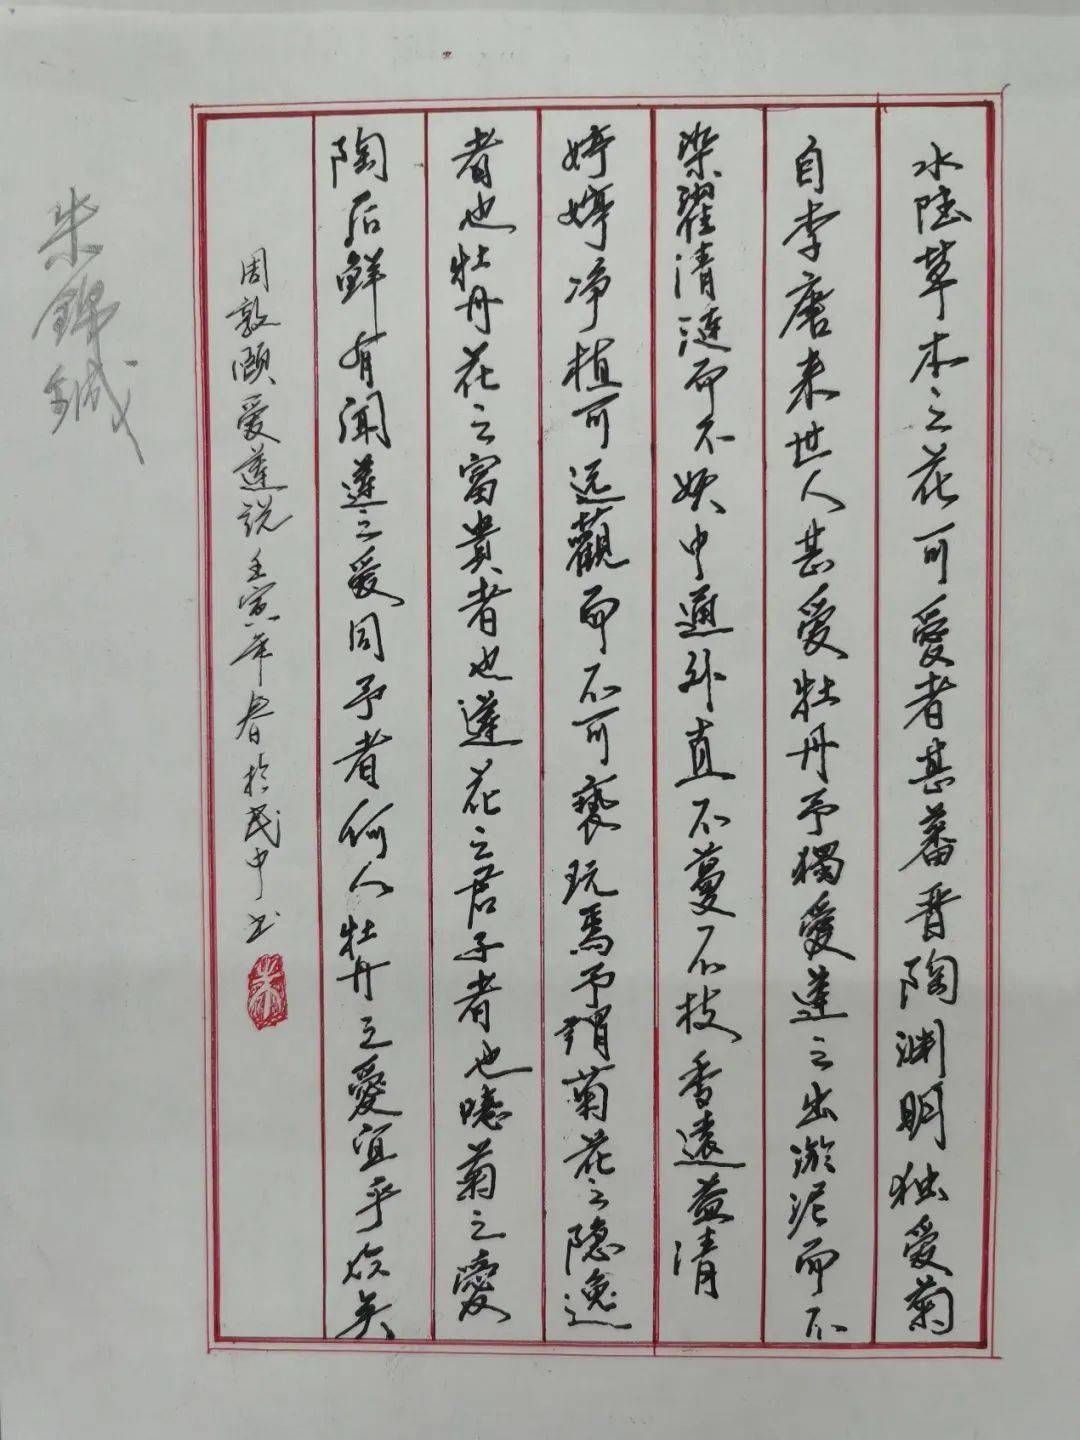 水陆草本之花可愛者甚蕃晋陶渊明独爱菊
自李唐来世人甚爱牡丹予獨愛蓮之出淤泥而不
染濯清涟而不妖中通外直不蔓不枝香遠益清
婷婷净植可远觀而不可褻玩焉予謂菊花之隐逸
者也牡丹花之富貴者也蓮花之君子者也噫菊之愛
陶后鲜有闻蓮之爱同予者何人牡丹之愛宜乎众矣
周敦頤爱蓮说壬寅年春於民中书
朱
朱錦鋮